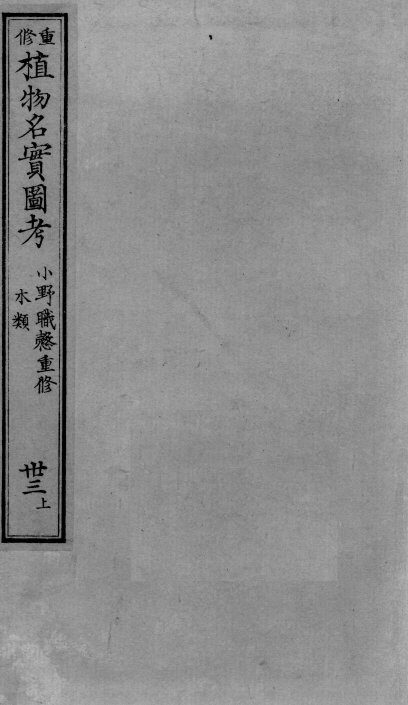 重修
植物名實圖考
小野職愨重修
木類
卅三
上